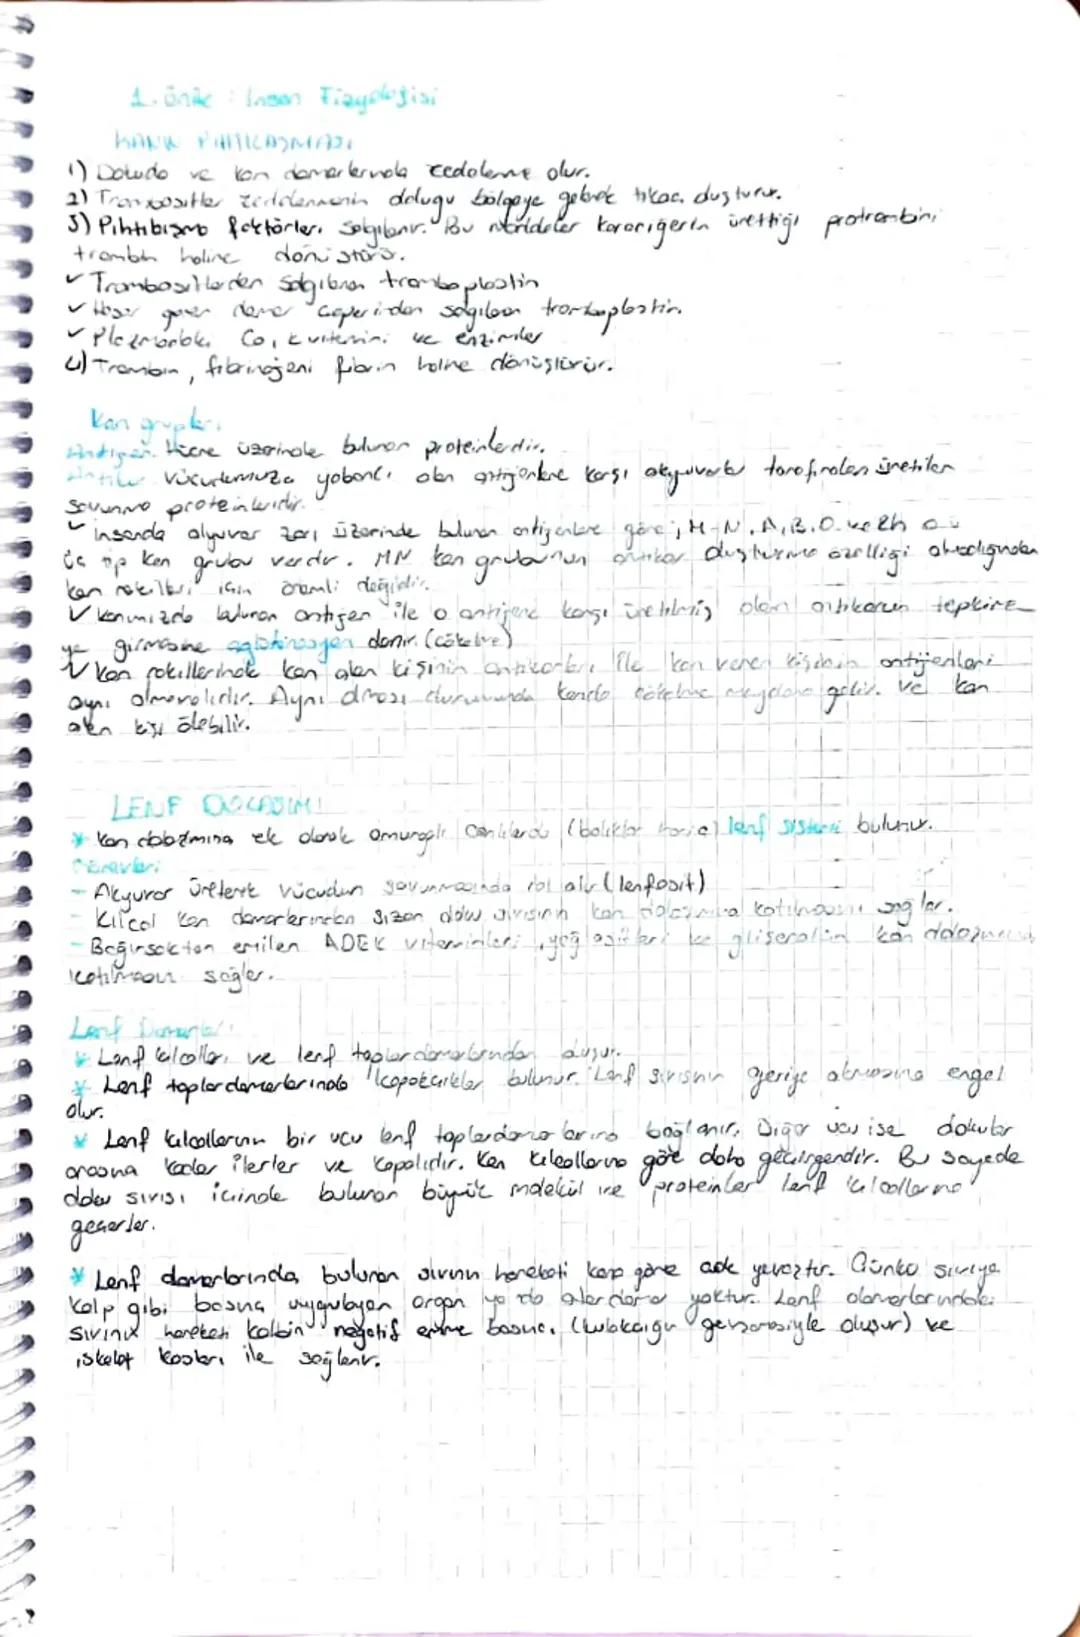 1. Ünite : İnsan Fizyolojisi
KANIN PIHTILAŞMASI
1) Dokuda ve kan damarlarında zedelenme olur.
2) Trombositler zedelenmenin olduğu bölgeye gelerek tıkaç oluşturur.
3) Pıhtılaşma faktörleri salgılanır. Bu maddeler karaciğerin ürettiği protrombini
trombin haline dönüştürür.
✓ Trombositlerden salgılanan tromboplastin
✓ Hasar gören damar çeperinden salgılanan tromboplastin.
✓ Plazmadaki Ca, K vitamini ve enzimler
4) Trombin, fibrinojeni fibrin haline dönüştürür.
Kan grupları
Antijen: Hücre üzerinde bulunan proteinlerdir.
Antikor: Vücudumuza yabancı olan antijenlere karşı akyuvarlar tarafından üretilen
savunma proteinleridir.
✓ insanda alyuvar zarı üzerinde bulunan antijenlere göre; M-N, A,B,O ve Rh
üç tip kan grubu vardır. MN kan grubunun antikor oluşturma özelliği olmadığından
kan nakilleri için önemli değildir.
✓ Kanımızda bulunan antijen ile o antijene karşı üretilmiş olan antikorun tepkime
ye girmesine aglütinasyon denir. (çökelme)
✓ Kan nakillerinde kan alan kişinin antikorları ile kan veren kişinin antijenleri
aynı olmamalıdır. Aynı olması durumunda kanda çökelme meydana gelir. ve kan
alan kişi ölebilir.
LENF DOLAŞIMI
* Kan dolaşımına ek olarak omurgalı canlılarda (balıklar hariç) lenf sistemi bulunur.
Görevleri
- Akyuvar üreterek vücudun savunmasında rol alır (lenfosit)
- Kılcal kan damarlarından sızan doku sıvısının kan dolaşımına katılmasını sağlar.
- Bağırsaktan emilen ADEK vitaminleri, yağ asitleri ve gliserolün kan dolaşımına
katılmasını sağlar.
Lenf Damarları
* Lenf kılcalları ve lenf toplardamarlarından oluşur.
* Lenf toplardamarlarında kapakçıklar bulunur. Lenf sıvısının geriye akmasına engel
olur.
* Lenf kılcallarının bir ucu lenf toplardamarlarına bağlanır. Diğer ucu ise dokular
arasına kadar ilerler ve kapalıdır. Kan kılcallarına göre daha geçirgendir. Bu sayede
doku sıvısı içinde bulunan büyük molekül ve proteinler lenf kılcallarına
geçerler.
* Lenf damarlarında bulunan sıvının hareketi kana göre çok yavaştır. Çünkü sıvıya
kalp gibi basınç uygulayan organ ya da atardamar yoktur. Lenf damarlarındaki
sıvının hareketi kalbin negatif emme basıncı (kulakçığın gevşemesiyle oluşur) ve
iskelet kasları ile sağlanır.